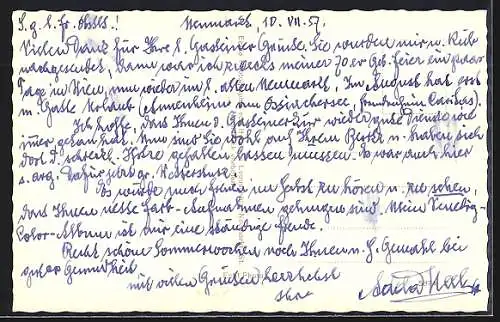 S. g. l. Fr. Neumarkt, 10. VII. 57.
Vielen Dank für Ihre l. Gasteiner Grüsse. Sie wurden mir n.
nachgesendet, dann war ich zwecks meiner 70er Geb. feier ein paar
Tage in Wien, nun wieder im l. alten Neumarkt. Im August hat erst
m. Gatte Urlaub (Annenheim am Ossiachersee,
Ich hoffe, dass Ihnen d. Gasteiner Kur wieder gute Dienste wie
immer getan hat. Nun sind Sie wohl auf Ihrem Besitz u. haben sich
dort d. schreckl. Hitze gefallen lassen müssen. Es war auch hier
s. arg. Dafür jetzt gr. Wettersturz.
Es würde mich freuen im Herbst zu hören u. zu sehen,
dass Ihnen nette Farb-Aufnahmen gelungen sind. Mein Venedig-
Color-Album ist mir eine ständige Freude.
Recht schöne Sommerwochen noch Ihnen u. H. Gemahl bei
guter Gesundheit
mit vielen Grüssen herzlichst
Ihre